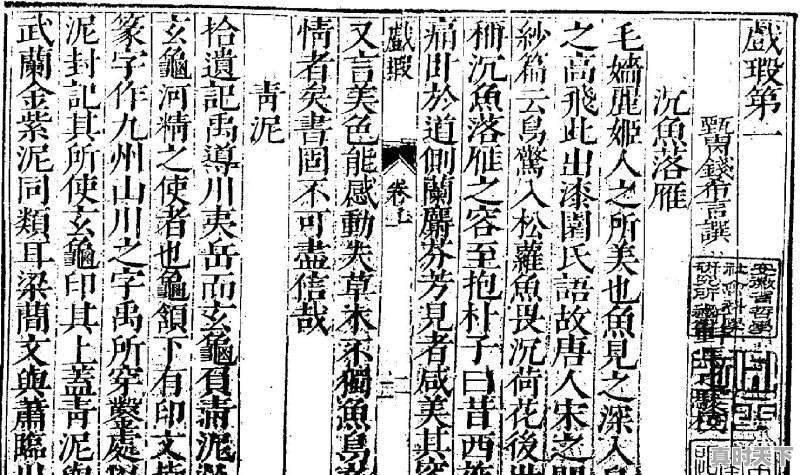 戲瑕第一
甄冑錢希言譔
沉魚落雁
毛嬙麗姬人之所美也魚見之深入
之高飛此出漆園氏語故唐人宋之問
紗篇云鳥驚入松蘿魚畏沉荷花後世
稱沉魚落雁之容至抱朴子曰昔西施
痛臥於道側蘭麝芬芳見者咸美其容
戲瑕
卷一
又言美色能感動夫草木不獨魚鳥
情者矣書固不可盡信哉
青泥
拾遺記禹導川夷岳而玄龜負青泥
玄龜河精之使者也龜頷下有印文皆
篆字作九州山川之字禹所穿鑿處
泥封記其所使玄龜印其上蓋青泥與
武蘭金紫泥同類耳梁簡文與蕭臨川
安徽省哲學
社會科學
研究所
真时天下